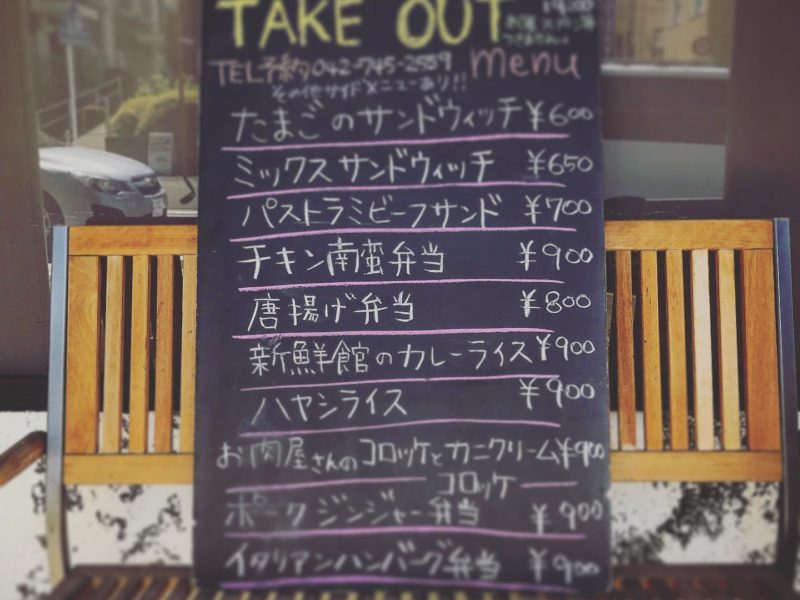 TAKE OUT
TEL予約042-745-2559 Menu
その他サイドメニューあり!!
たまごのサンドウィッチ ¥600
ミックスサンドウィッチ ¥650
パストラミビーフサンド ¥700
チキン南蛮弁当 ¥900
唐揚げ弁当 ¥800
新鮮館のカレーライス ¥900
ハヤシライス ¥900
お肉屋さんのコロッケとカニクリーム ¥900
コロッケ
ポークジンジャー弁当 ¥900
イタリアンハンバーグ弁当 ¥900